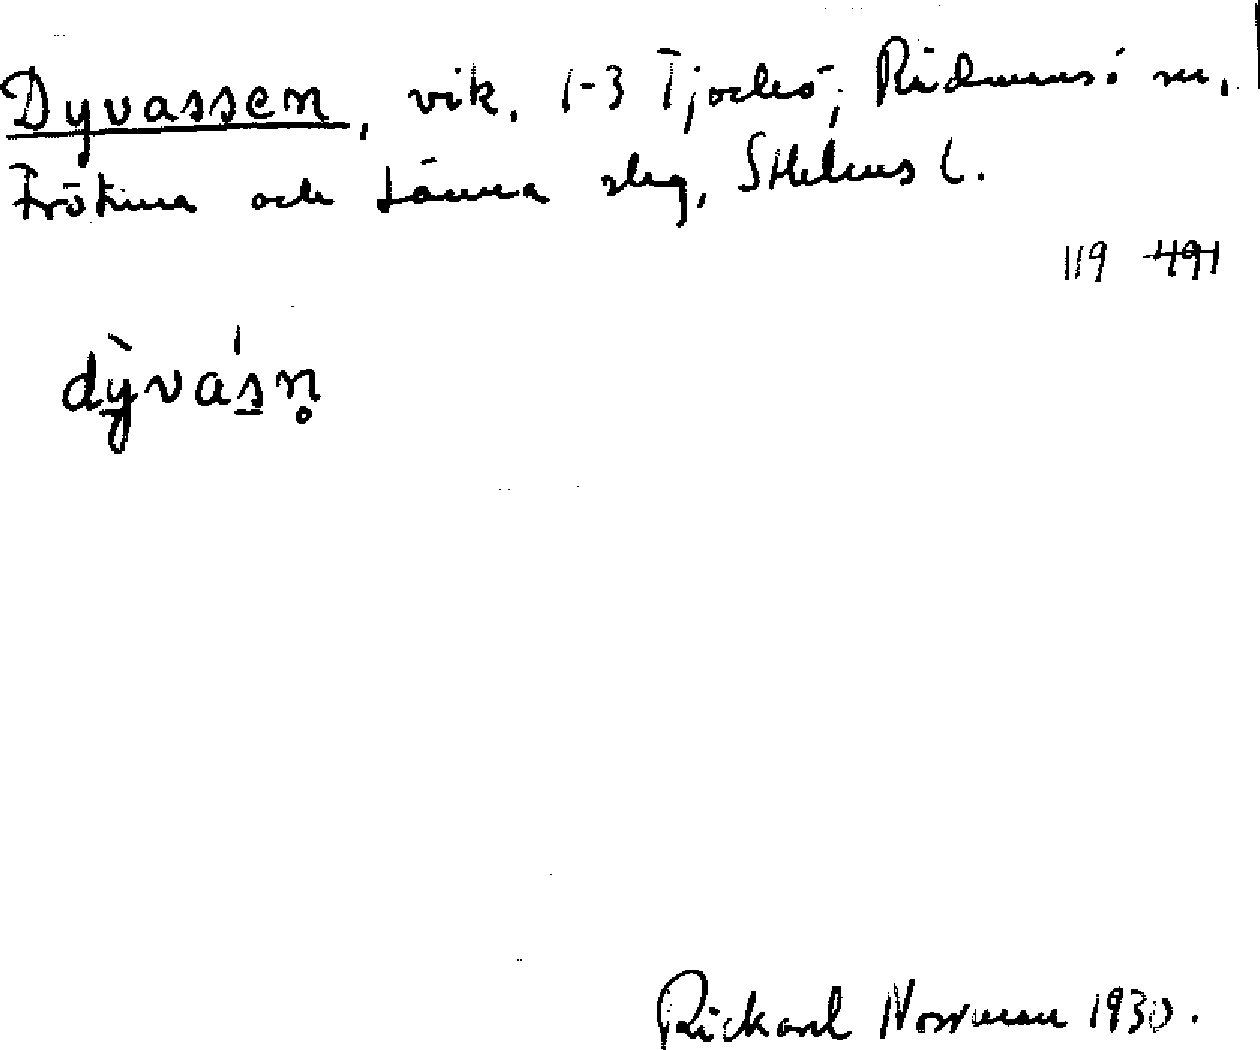 Dyvassen, vik, 1-3 Tjockö, Rådmansö sn,
Frötuna och Länna slag, Sthlms l.
119 491
dỳ̠vás̠n̥
Rickard Norrman 1930.